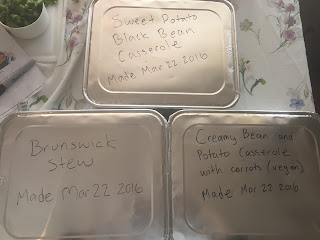 Sweet Potato
Black Bean
Casserole
Made Mar 22 2016
Brunswick
Stew
Made Mar 22 2016
Creamy Bean and
Potato Casserole
with carrots (vegan)
Made Mar 22 2016